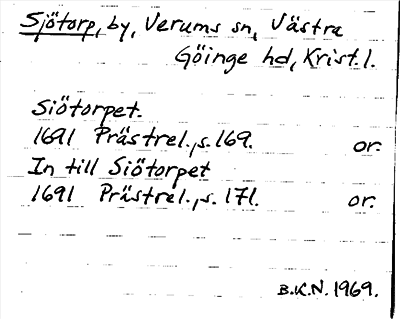 Sjötorp, by, Verums sn, Västra
Göinge hd, Krist. l.
Siötorpet.
1691 Prästrel., s. 169. or.
In till Siötorpet
1691 Prästrel., s. 171. or.
B.K.N. 1969.